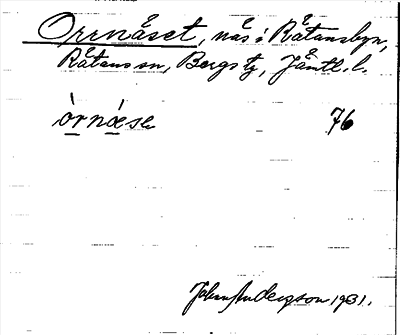 Orrnäset, näs i Rätansbyn,
Rätans sn, Bergs tg, Jämtl. l.
òrnǽse 76
Johan Anderson 1931.